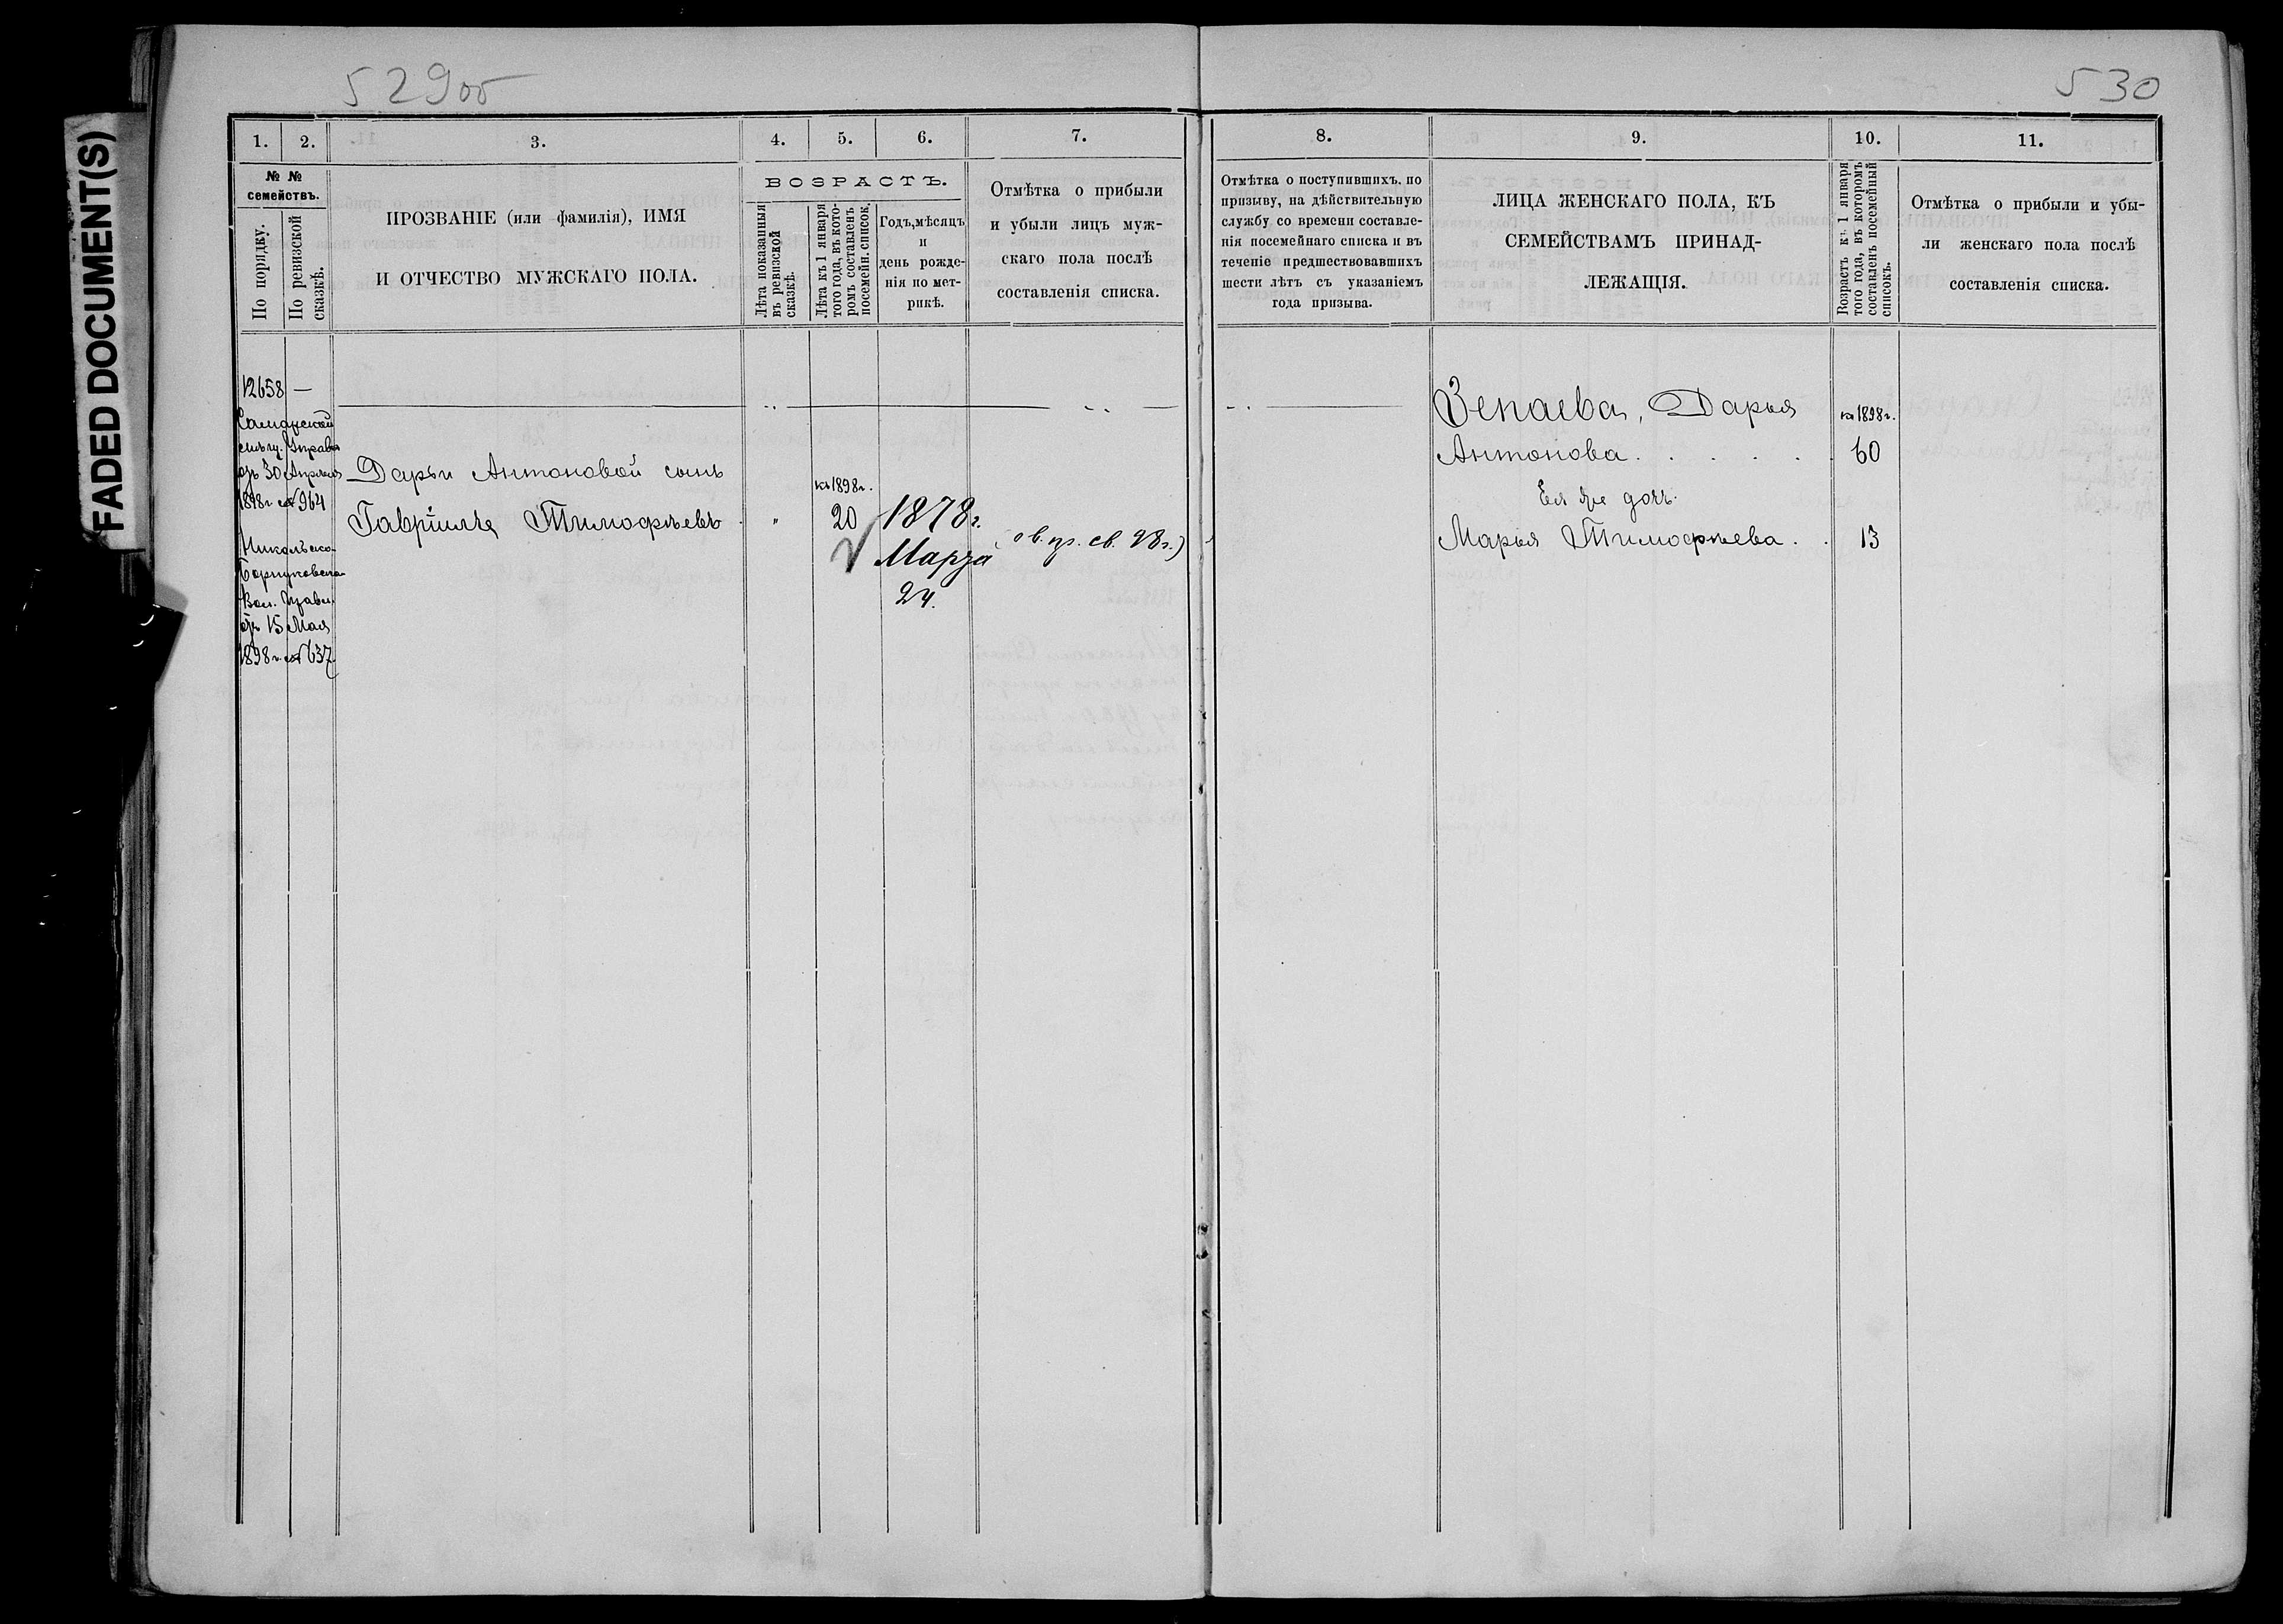 FADED DOCUMENT(S)
529об
530
1. 2. 3. 4. 5. 6. 7.
№ №
семействъ.
По порядку.
По ревизской сказкѣ.
ПРОЗВАНІЕ (или фамилія), ИМЯ
И ОТЧЕСТВО МУЖСКАГО ПОЛА.
ВОЗРАСТЪ.
Лѣта показанныя
въ ревизской
сказкѣ.
Лѣта къ 1 января
того года, въ кото-
ромъ составленъ
посемейн. список.
Годъ, мѣсяцъ
и
день рожде-
нія по мет-
рикѣ.
Отмѣтка о прибыли
и убыли лицъ муж-
скаго пола послѣ
составленія списка.
12658 —
Самарской
мѣщ. Управы
отъ 30 Апрѣля
1898 г. № 964
Николъско-
Вол. Правл.
отъ 15 Мая
1898 г. № 637
Дарьи Антоновой сынъ
Гавріилъ Тимофѣевъ
къ 1898 г.
20
1878 г.
Марта
24.
8. 9. 10. 11.
Отмѣтка о поступившихъ, по
призыву, на дѣйствительную
службу со времени составле-
нія посемейнаго списка и въ
теченіе предшествовавшихъ
шести лѣтъ съ указаніемъ
года призыва.
ЛИЦА ЖЕНСКАГО ПОЛА, КЪ
СЕМЕЙСТВАМЪ ПРИНАД-
ЛЕЖАЩІЯ.
Возрастъ къ 1 января
того года, въ которомъ
составленъ посемейный
списокъ.
Отмѣтка о прибыли и убы-
ли женскаго пола послѣ
составленія списка.
Зепаева, Дарья
къ 1898 г.
Антонова . . . . . . 60
Ея же дочь
Марья Тимофѣева . . 13